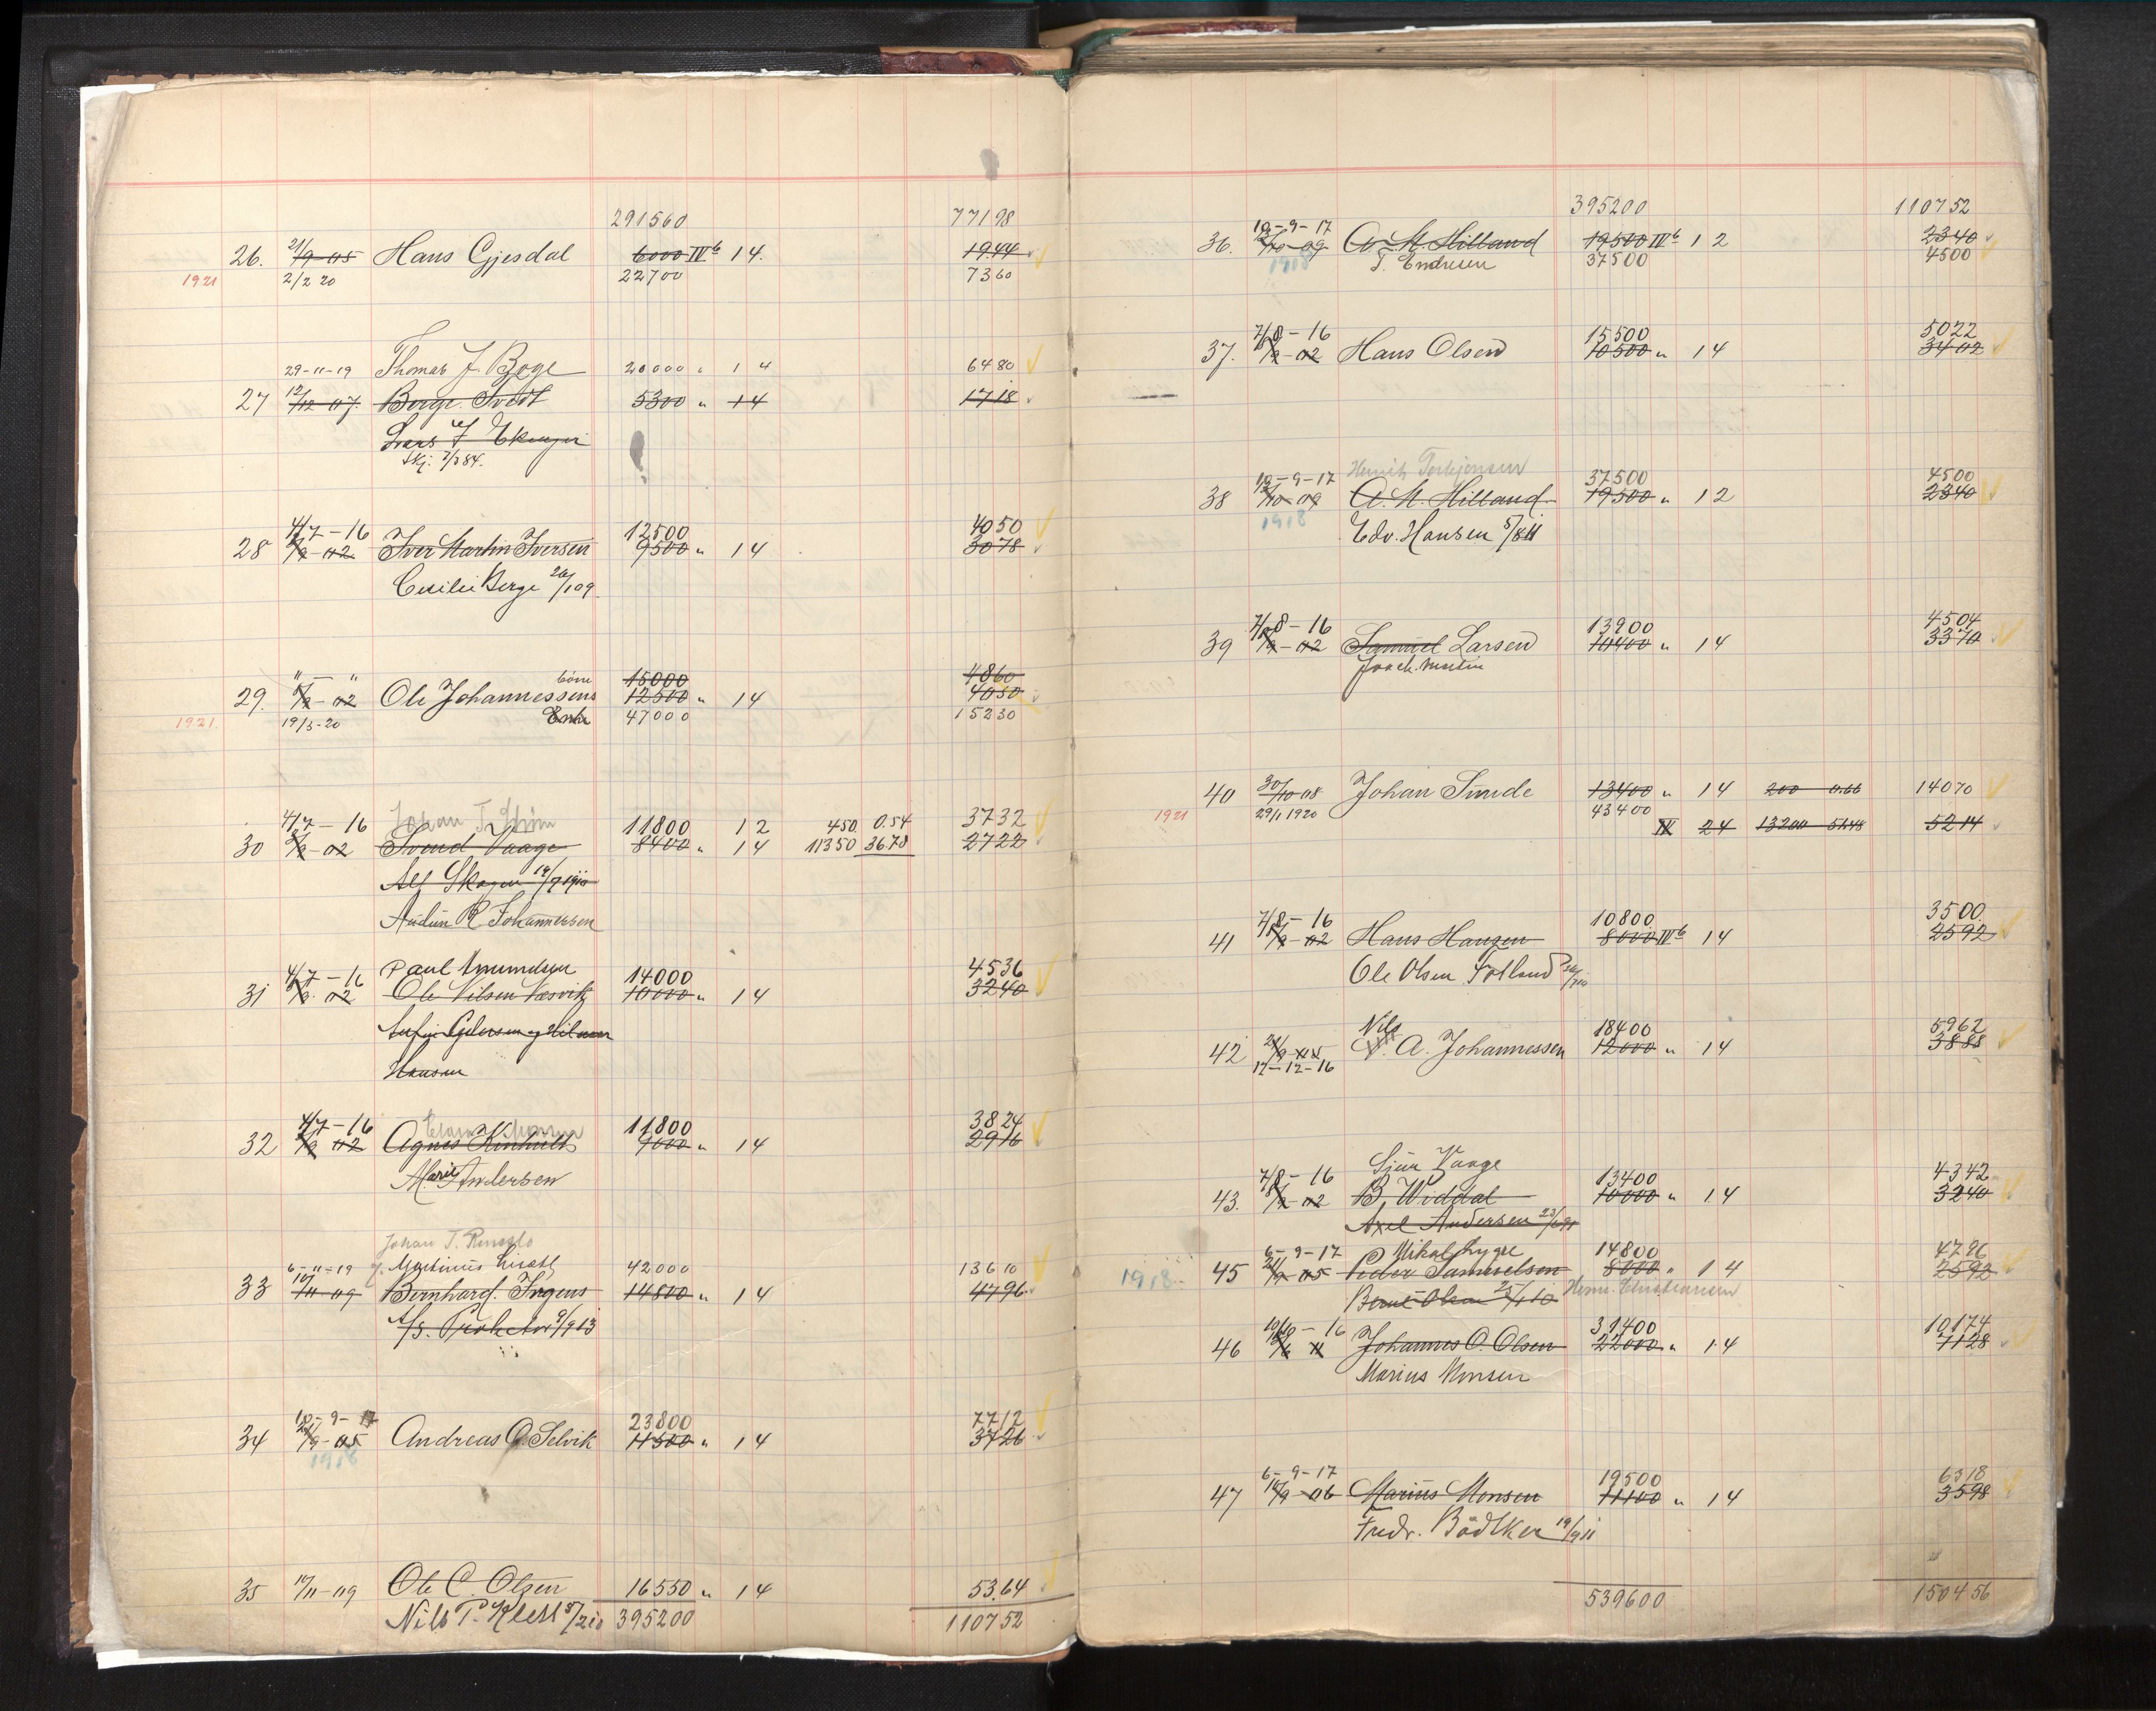 291560 77198
26. 21/9-05 Hans Gjesdal 6000 IV6 14. 1944
1921 2/2 20 22700 7360
29-11-19 Thomas J. Boge 20000 " 14 6480
27 12/12-07. Berge Tvedt 5300 " 14 1718
Skj. 7/3 84.
4/7-16 12500 4050
28 8/9-02 Iver Martin Iversen 9500 " 14 3078
Cecilie Berge 26/1 09.
" - " börn 15000 4860
29. 8/9-02 Ole Johannessens 12500 " 14 4050
1921. 19/3-20 Enke 47000 15230
4/7-16 Johan T. 11800 12 450 0.54 3732
30 8/9-02 Svend Vaage 8400 " 14 11350 36.78 2722
Alf Skogen 14/7 1910
Audun R Johannessen
4/7-16 Paul Amundsen 14000 4536
31 8/9-02 Ole Nilsen Næsvik 10000 " 14 3240
Hansen
4/7-16 11800 3824
32 8/9 02 Agnes 9000 " 14 2916
Marie Andersen
Johan T.
6-11-19 Martinius 42000 13610
33 10/11-09 Bernhard. Ingens 14800 " 14 4796
A/S. 9/9 13
10-9-17 23800 7712
34 21/9-05 Andreas O. Selvik 11500 " 14 3726
1918
35 10/11-09 Ole C. Olsen 16550 " 14 53.64
Nils P. 5/2 10 395200 110752
395200 110752
10-9-17 2340
36. 12/10-09 A. M. Hilland 19500 IV6 12
1918 T. Endresen 37500 4500
7/8-16 15500 5022
37. 8/9-02 Hans Olsen 10500 " 14 3402
10-9-17 Henrik Torkjensen 37500 4500
38 12/10-09 A. M. Hilland 19500 " 12 2340
1918 Edv. Hansen 5/8 11
7/8-16 13900 4504
39 8/9-02 Samuel Larsen 10400 " 14 3370
Joack. Martin
40 30/10-08 Johan Sunde 13400 " 14 200 0.66 14070
1921 29/1 1920 43400
IV 24 13200 51.48 5214
7/8-16 10800 3500
41 8/9-02 Hans Hansen 8000 IV6 14 2592
Ole Olsen
Nils 18400 5962
42 21/9-05 A. Johannessen 12000 " 14 3888
12-12-16
Sjur Vaage
7/8-16 13400 4342
43. 8/9-02 B. Widdal 10000 " 14 3240
Axel Andersen
6-9-17 Mikal Lygre 14800 4796
1918. 45 21/9-05 Peder Samuelsen 8000 " 14 2592
Bernt Olsen 25/1 10 Henr. Christensen
10/10-16 31400 10174
46 Johannes O. Olsen 22000 " 14 7128
Marius Monsen
6-9-17 19500 6318
47 14/9-06 Marius Monsen 11100 " 14 3598
Fredr. Bödtker 19/9 11
539600 150456